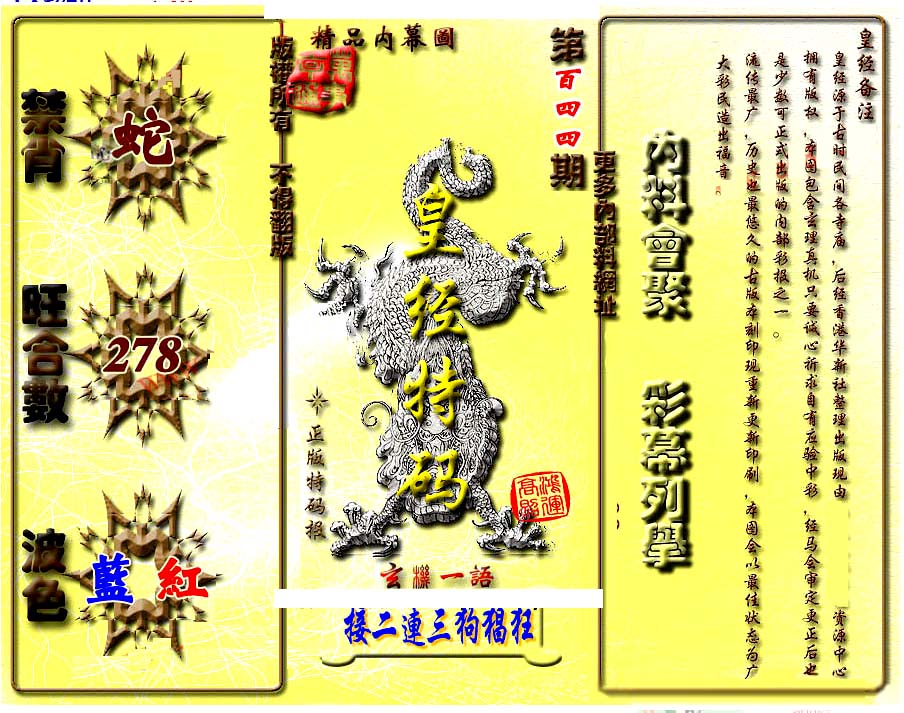 精品内幕圖
第百四四期
版權所有 不得翻版
更多內部料網址
禁肖
蛇
旺合數
278
波色
藍 紅
皇经特码
正版特码报
鴻運高照
玄機一語
接二連三狗猖狂
內料會聚 彩幕列舉
皇经备注
皇经源于古时民间各寺庙,后经香港华新社整理出版现由 资源中心
拥有版权,本图包含玄理真机只要诚心祈求自有应验中彩,经马会审定更正后也
是少数可正式出版的内部彩报之一。
流传最广,历史也最悠久的古版本刻印现重新更新印刷,本图会以最佳状态为广
大彩民造出福音